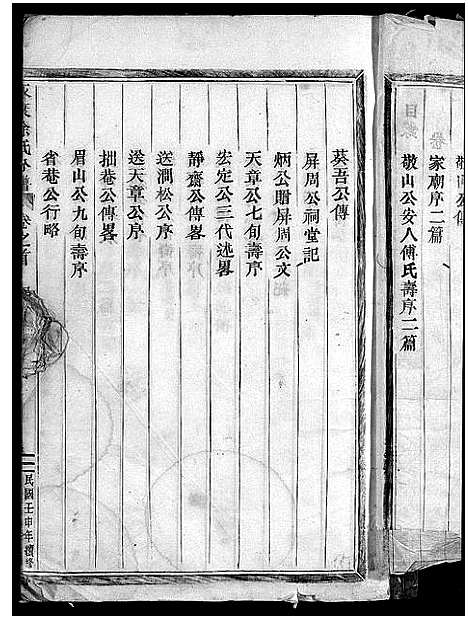 敬山公傳
家廟序二篇
敬山公安人傅氏壽序二篇
葵吾公傳
屏周公祠堂記
炳公贈屏周公文
天章公七旬壽序
宏定公三代述畧
靜齋公傳畧
送澗松公序
送天章公序
拙菴公傳畧
眉山公九旬壽序
省菴公行略
氏分譜 卷之首
民國壬申年續修